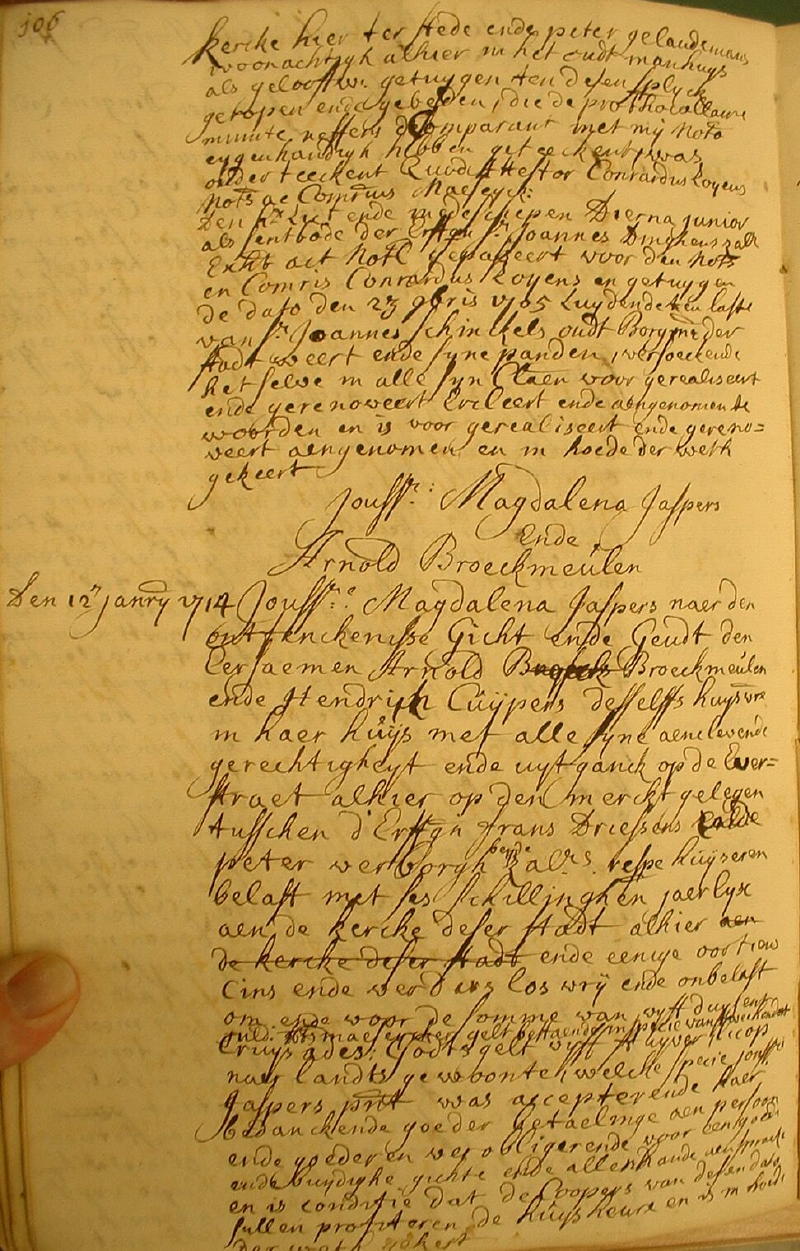 106
kercke hier ter stede ende peter gelaudemans
woonachtigh alhier in het oudt manhuys
als gelooffw. getuygen ten desen splyck
geropen ende gebeden, die de prothocollaire
minute neffens de Comparant met mij Nots
eygenhandigh hebben geteeckent, was
onderteeckent Quod attestor Conradus Loyens
Nots ac Comrius Maeseyck:
Den hr Lut ende medeschepen Dierna junior
als sentbode der Erffgen Sr Joannes Dinghens zalr
Exhibt act Notl gepasseert voor den Nots
en Comris Conrardus Loyens en getuygen
de dato den 23 9bris 1705 Luydende ten laste
van Sr Joannes Schinckels oudt Borgmr der
stadt weert ende syne panden, versoeckende
het selve in alle syn Claer voor gerealiseert
ende gerenoveert ende aengenomen te
woorden en is voor gerealiseert ende gereno=
veert aengenomen en in hoede der weth
gekeert
Jouffre: Magdalena Jaspers
Ende
Arnold Broeckmeulen
Den 12 janry 1714 Jouffre: Magdalena Jaspers naer den
ontfenckenisse Gicht ende Geudt den
Eersaemen Arnold Broeckmeulen
ende Hendrick Cuijpers desselffs huysvre
in haer huijs met alle syne aenclevende
gerechtigheyt ende uytganck op de Ever=
straet alhier op den merckt gelegen
tusschen d'Erffgn frans Driessens ende
peter verborgh beyde zalrs. respe huijseren
belast met ses schillinghen jaerlyx
aen de kercke deser stadt alhier aen
de kercke deser stadt ende eenige oort
Cins ende verders los vrij ende onbelast
om ende voor de somme van vyff duysent
guld: bbts maeseycker gelt bestaende in specie van
Cruysades: Godts gelt vyff stuyver licop
naer landts gewoonte, welcke specie jouffr
Jaspers prnt was accepterende haer
bedanckende goeder betaelinge aen persoon
ende goederen verobligerende voor een goede
ende buydighe gichte ende allerhande aenspraecke
en is conditie dat de Coopers van desen dato
sullen profiteren de huijs heure en is in hoede
der weth gekeert